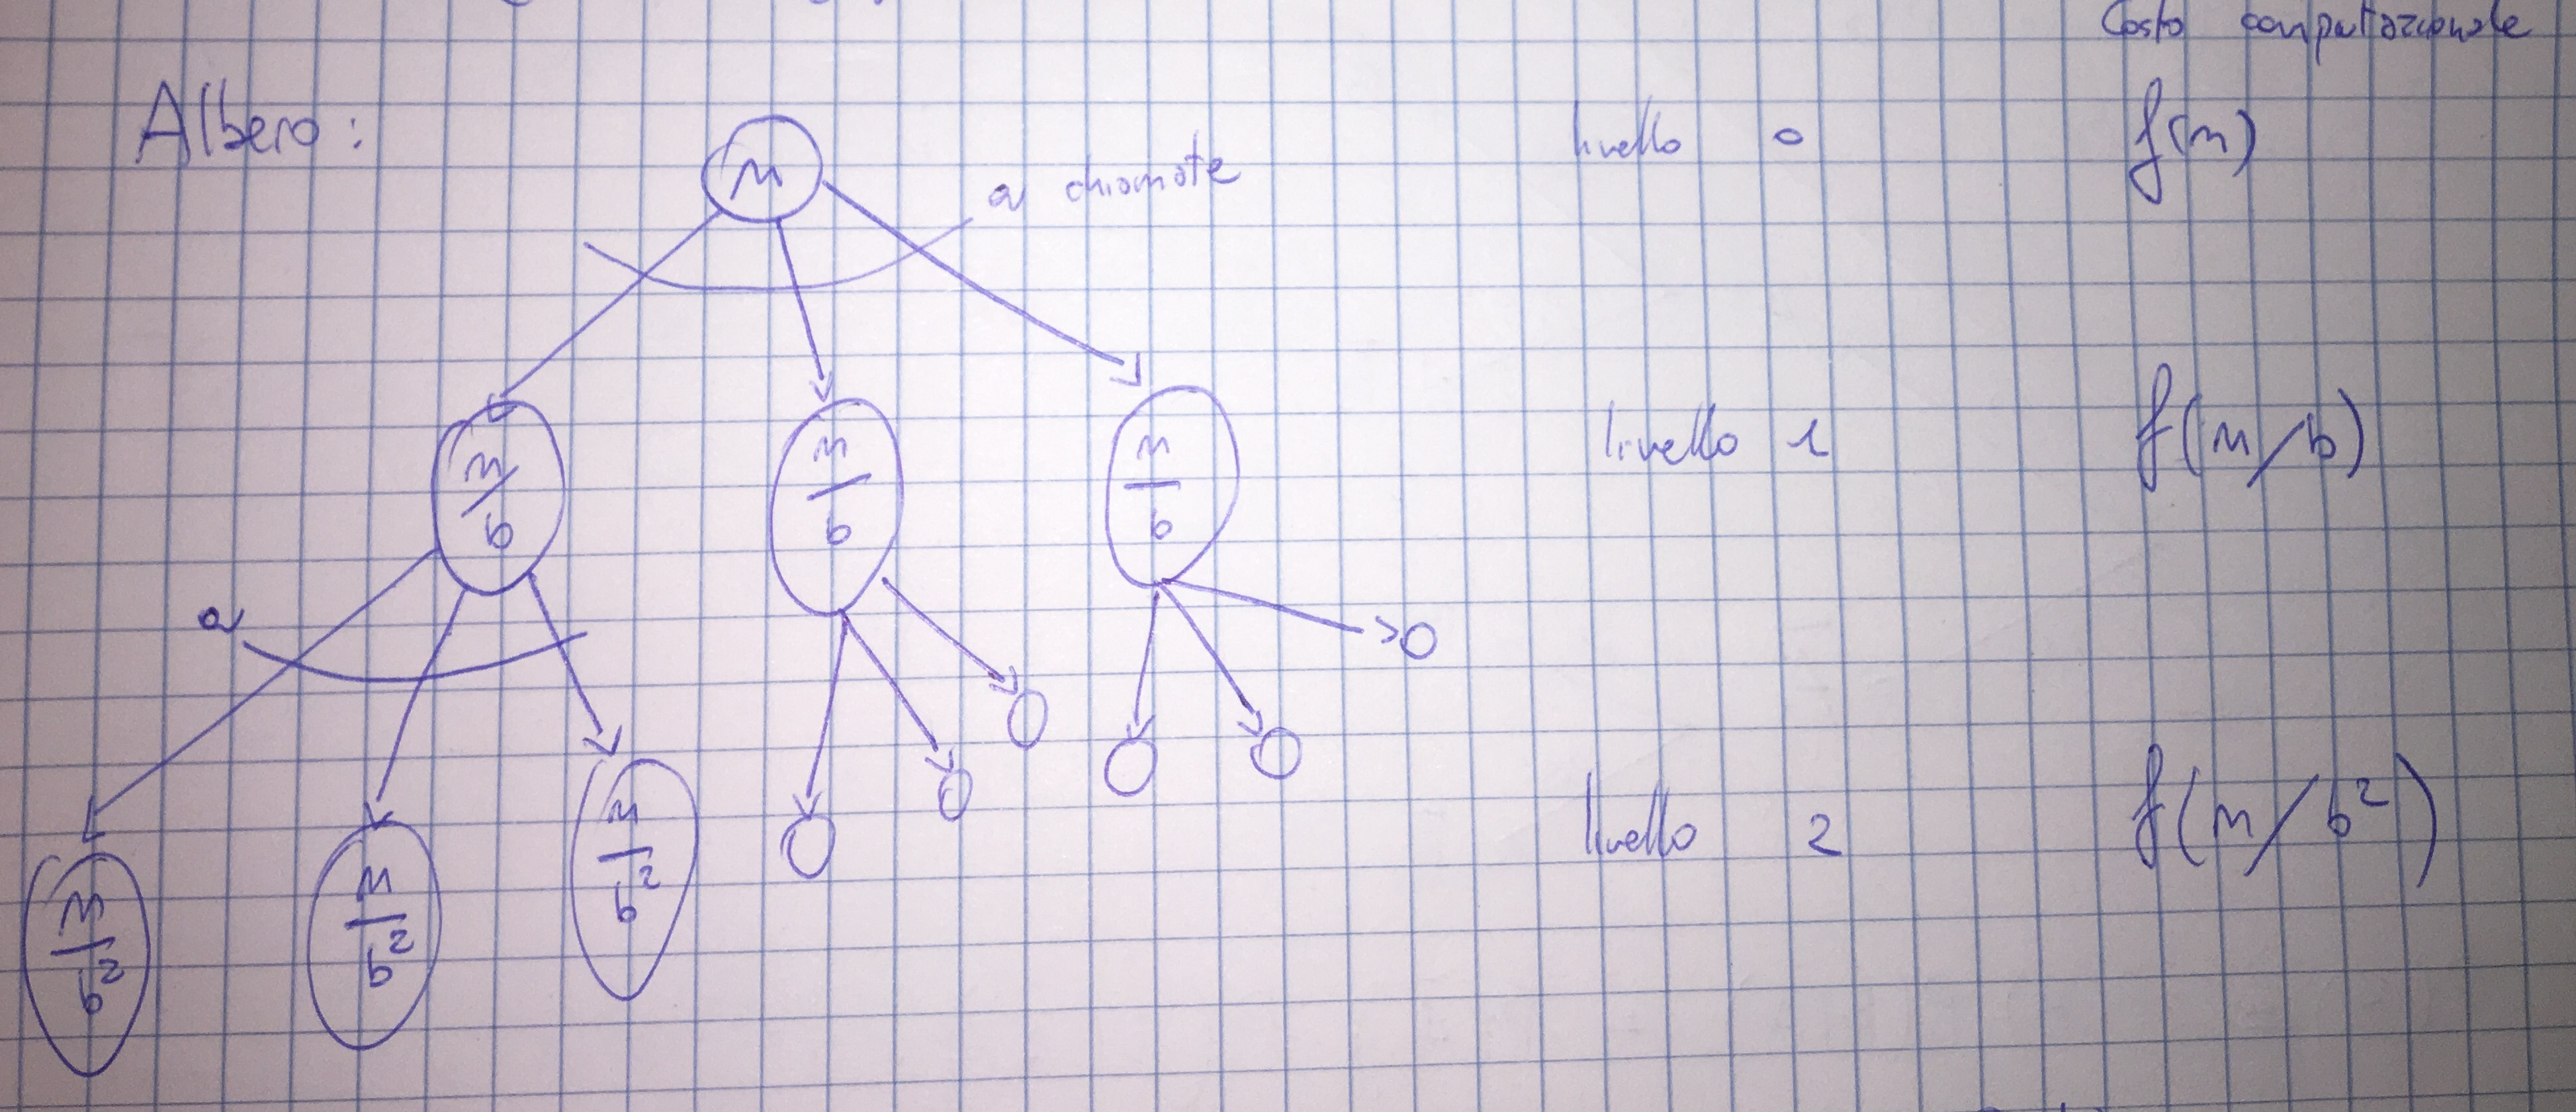 Costo computazionale
Albero:
n
a chiamate
livello 0
f(n)
n/b
n/b
n/b
livello 1
f(n/b)
a
n/b²
n/b²
n/b²
livello 2
f(n/b²)